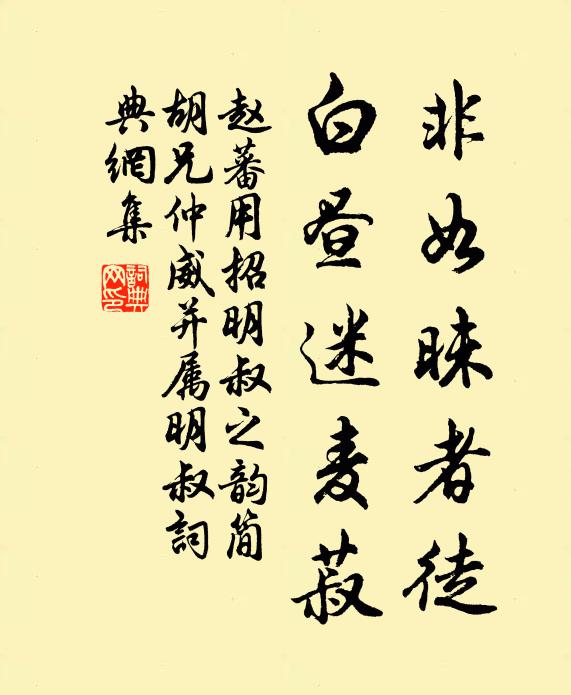 非如眯者徒
白昼迷麦菽
赵蕃用招明叔之韵简
胡兄仲威并属明叔詞
典網集
詞典网印